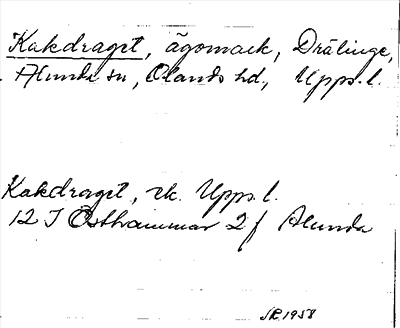 Kakdraget, ägomark, Drälinge,
Alunda sn, Olands hd, Upps. l.
Kakdraget, ek. Upps. l.
12 I Östhammar 2 f Alunda
1958